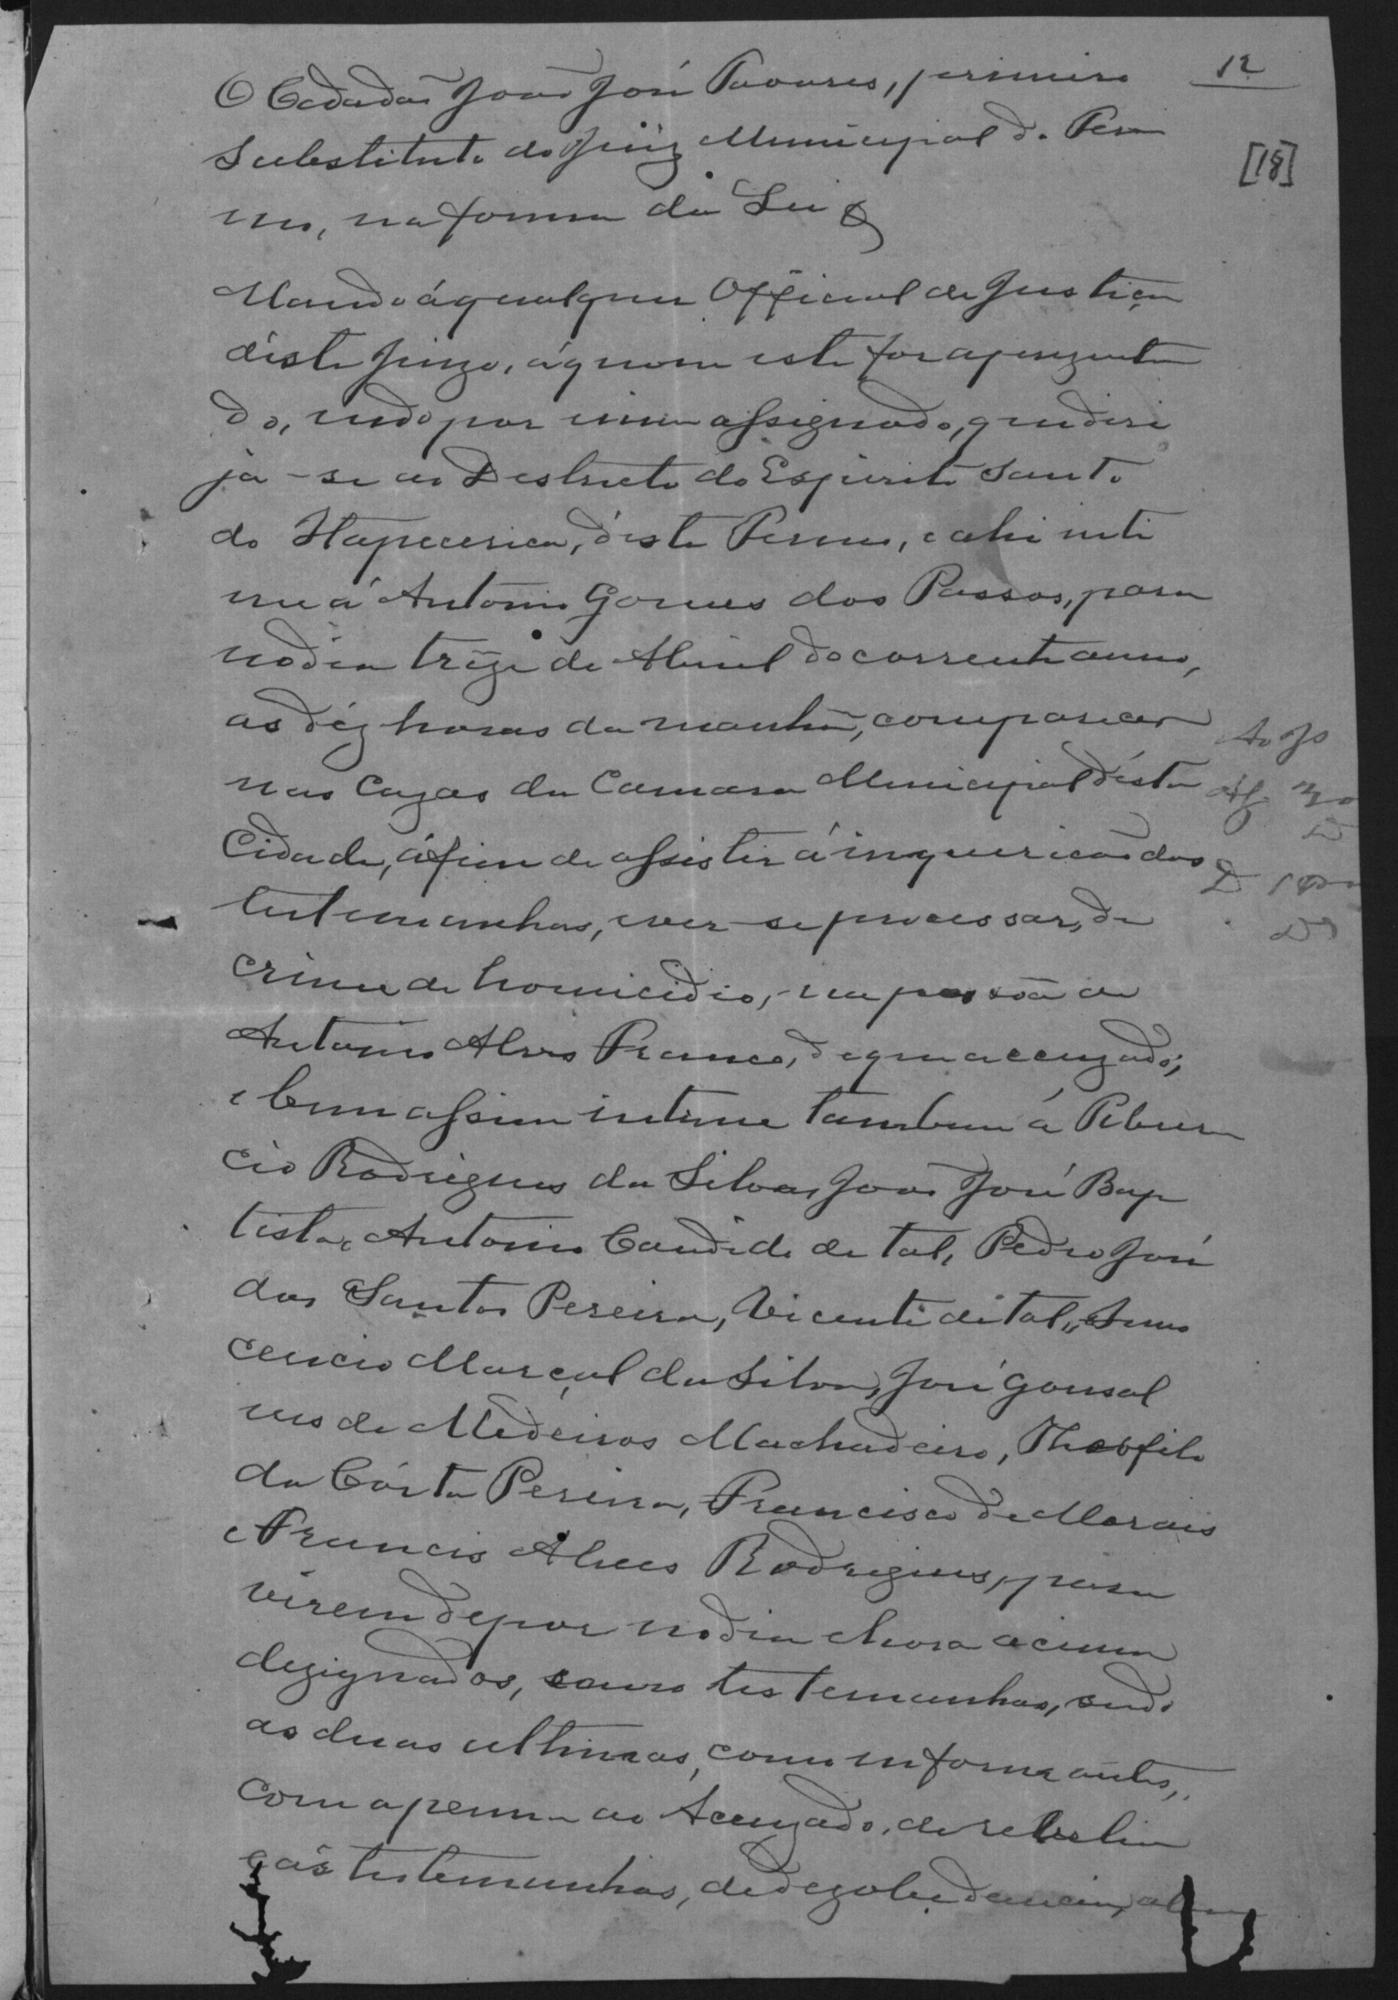 12
[18]
O Cedadão João José Tavares, primeiro
Substituto do Juiz Municipal do Ter
mo, na forma da Lei &
Mando á qualquer Official de Justiça
déste Juizo, á quem este for aprezenta
do, indo por mim assignado, que diri
ja-se ao Destricto do Espirito Santo
do Itapecerica, déste Termo, e ahi inti
me á Antonio Gomes dos Passos, para
no dia trêze de Abril do corrente anno,
as déz horas da manhã, comparecer
nas Cazas da Camara Municipal désta
Cidade, áfim de assistir á inquerição das
testemunhas, e ver-se processar, de
crime de homicidio, na pessôa de
Antonio Alves Franco, de que accuzado;
e bem assim intime tambem á Tibur
cio Rodrigues da Silva, João José Bap
tista, Antonio Candido de tal, Pedro José
dos Santos Pereira, Vicente de tal, Inno
cencio Marçal da Silva, José Gonsal
ves de Medeiros Machadeiro, Theofilo
da Cósta Pereira, Francisco de Morais
e Francis Alves Rodrigues, para
virem depor no dia e hora acima
dezignados, como testemunhas, sendo
as duas ultimas, como informantes,
com a penna ao Accuzado, de rebelia
e ás testemunhas, de dezobediencia, alem